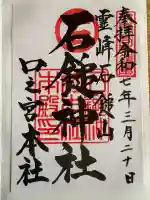 奉拝令和七年三月二十日
霊峰石鎚山
石鎚神社
口之宮本社